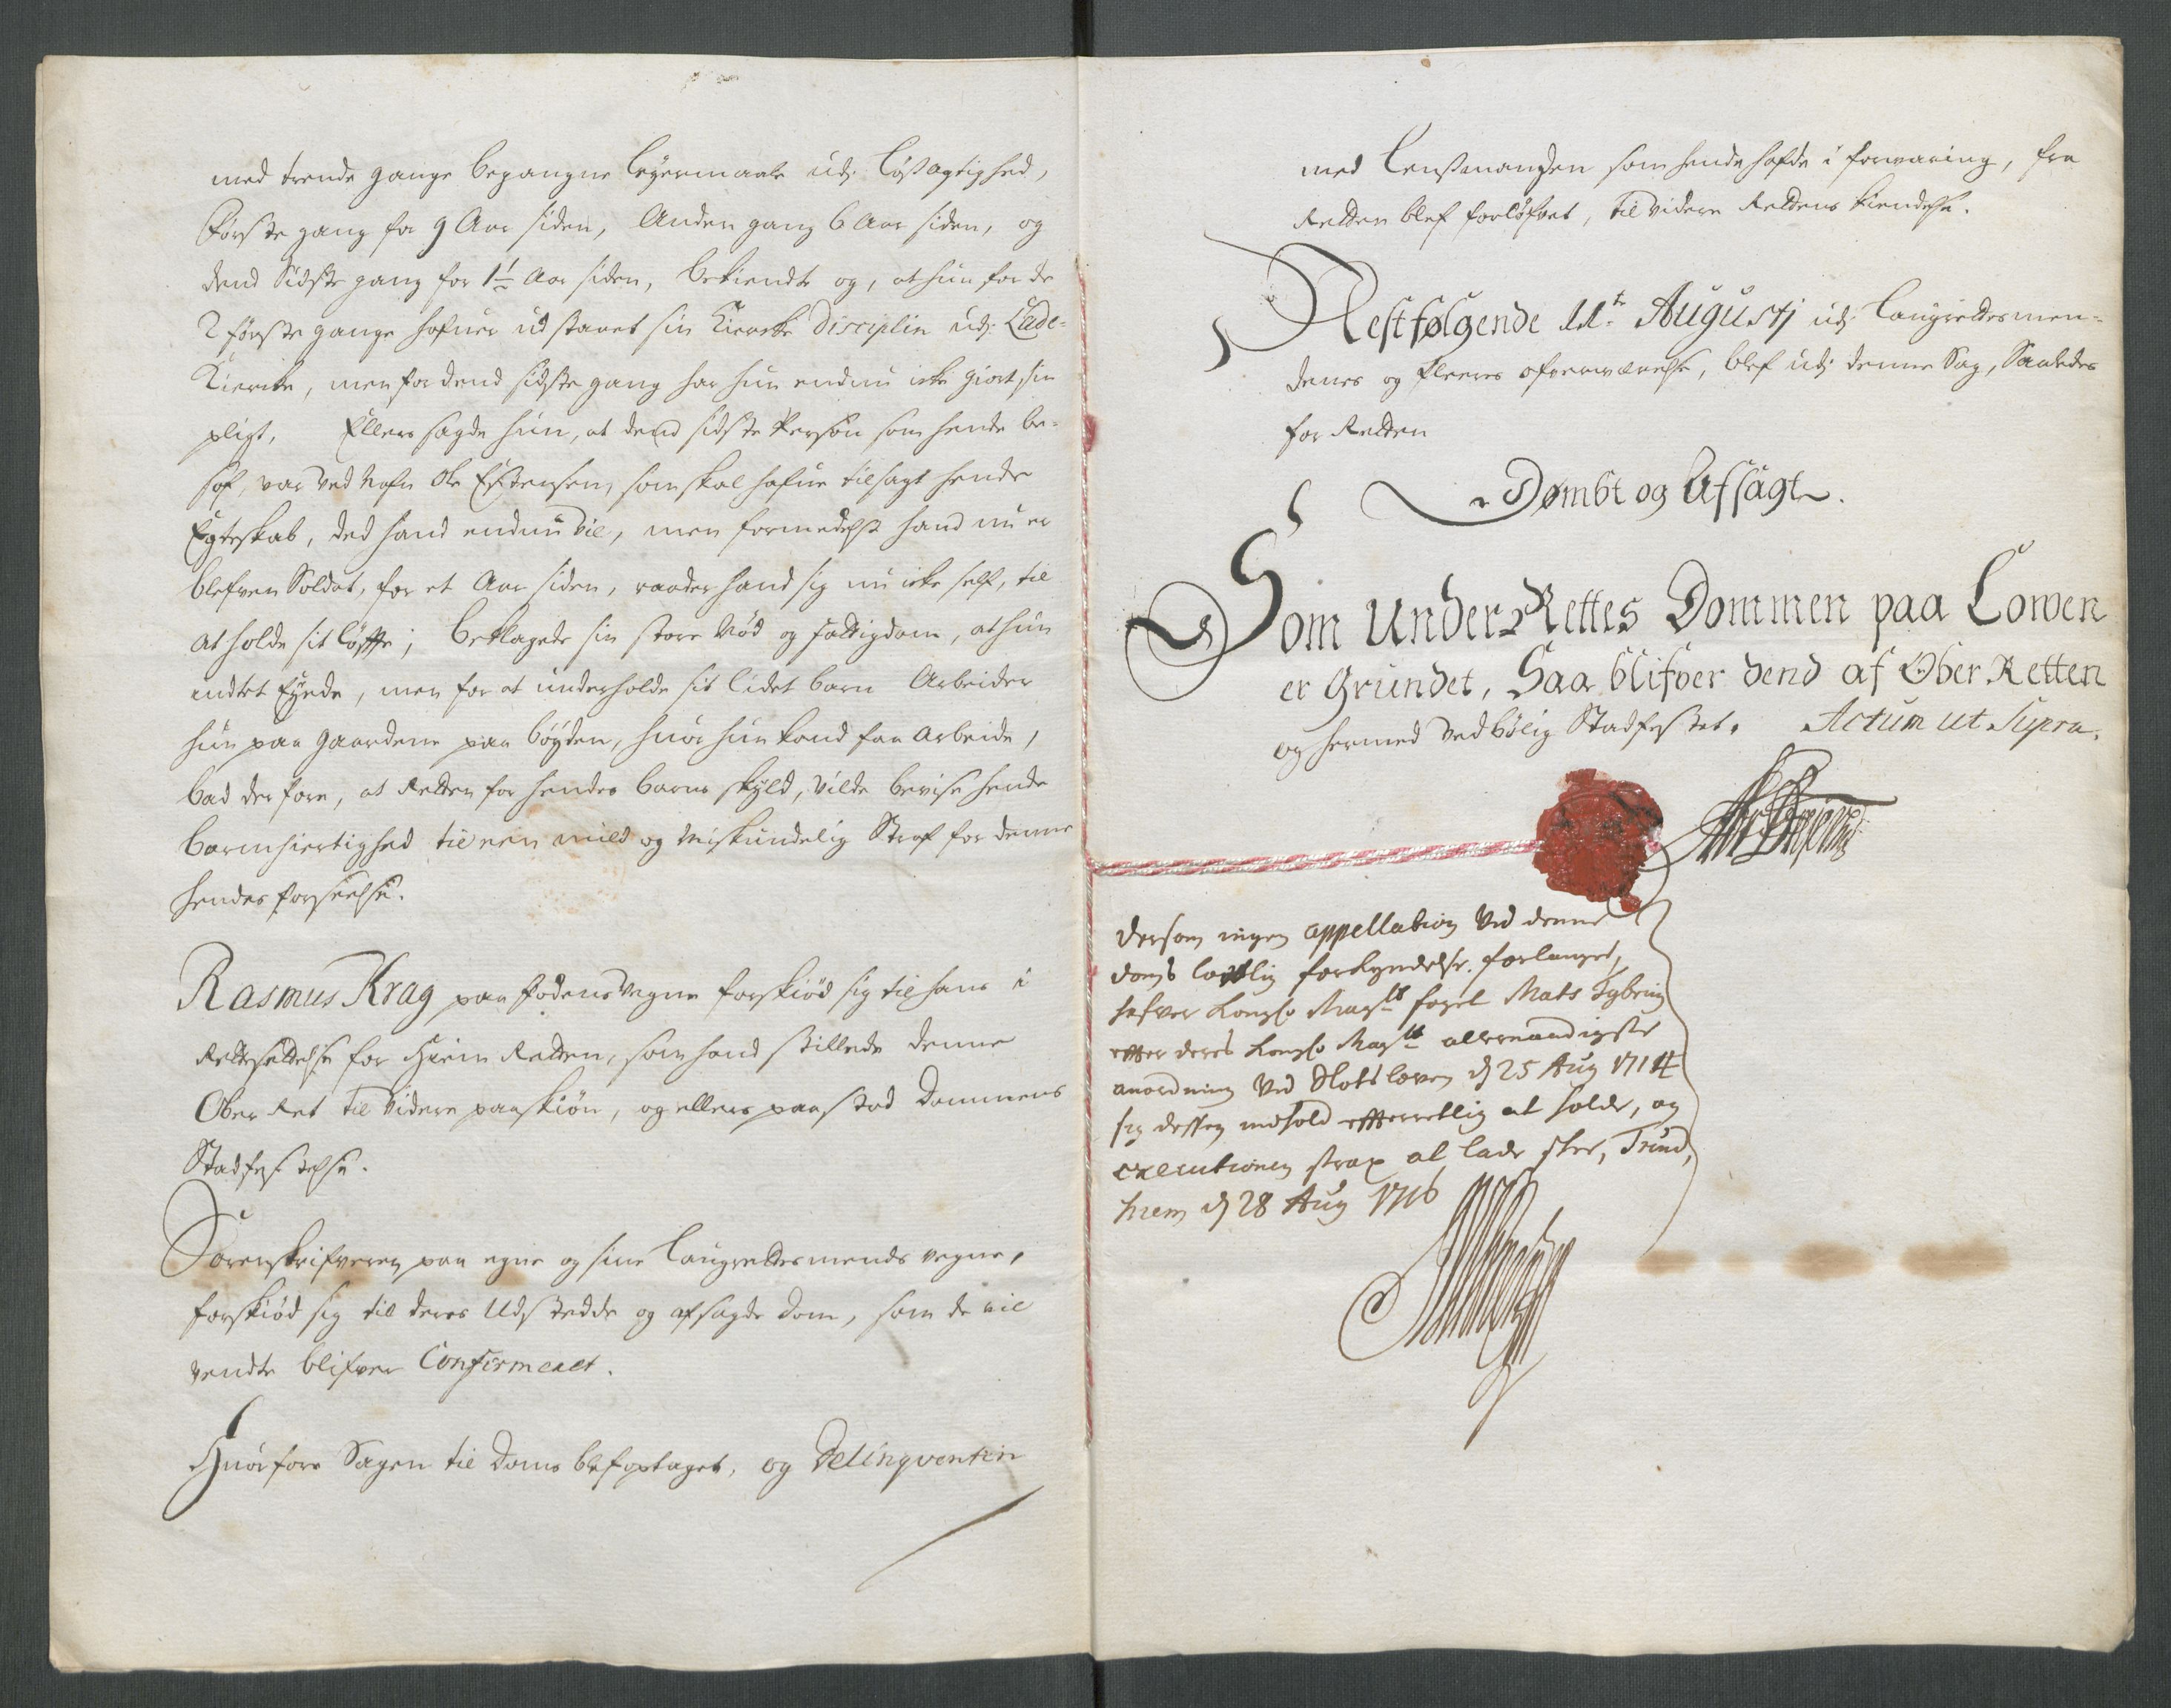 med trende gange begangne leyermaale udj løsagtighed,
Første gang for 9 Aar siden, Anden gang 6 Aar siden, og
dend Sidste gang for 1½ Aar siden, bekiendte og, at hun for de
2 første gange hafuer udstaaet sin Kiercke Disciplin udj Lade-
Kiercke, men for dend sidste gang har hun endnu icke giort sin
pligt, Ellers sagde hun, at dend sidste Person som hende be-
sof, var ved Nafn Ole Estensen, som skal hafue tilsagt hende
Egteskab, ded hand endnu vil, men formedelst hand nu er
blefven Soldat, for et Aar siden, raader hand sig nu icke self, til
at holde sit løffte; beklagede sin store Nød og fattigdom, at hun
indtet Eyede, men for at underholde sit lidet barn Arbeider
hun paa gaardene paa bøyden, huor hun kand faa arbeide,
bad derfore, at Retten for hendes barns skyld, vilde bevise hende
barmhiertighed til een mild og Miskundelig Straf for denne
hendes forseelse.
Rasmus Krag paa fodens vegne forskiød sig til hans i
Rettesettelse for Hiem Retten, som hand stillede denne
Ober Ret til videre paaskiøn, og ellers paastod Dommens
Stadfestelse.
Sorenskrifveren paa egne og sine laugrettesmends vegne,
forskiød sig til deres Udstedde og afsagde Dom, som de vil
vendte blifver Confirmeret.
Huorfore Sagen til Doms blef optaget, og Delinqventin
med Lensmanden som hende hafde i forvaring, fra
Retten blef forløfvet, til videre Rettens kiendelse.
Nestfølgende 11te Augustj udj laugrettesmen-
denes og fleeres ofverværelse, blef udj denne Sag, Saaledes
for Retten
Dømbt og Afsagt.
Som Under-Rettes Dommen paa Lowen
er Grundet, Saa blifver dend af Ober Retten
og hermed ved bølig Stadfestet. Actum ut Supra.
Dersom ingen appellation Ved denne
doms lovlig forkyndelse forlanges,
hafver Kongl. Maysts foget Mats Tybring
efter deres Kongl. Maysts allernaadigste
anordning Ved Slotsloven d 25 Aug 1714
sig dessen indhold efterrettlig at holde, og
executionen strax at lade skee, Trund,
hiem d 28 Aug 1716